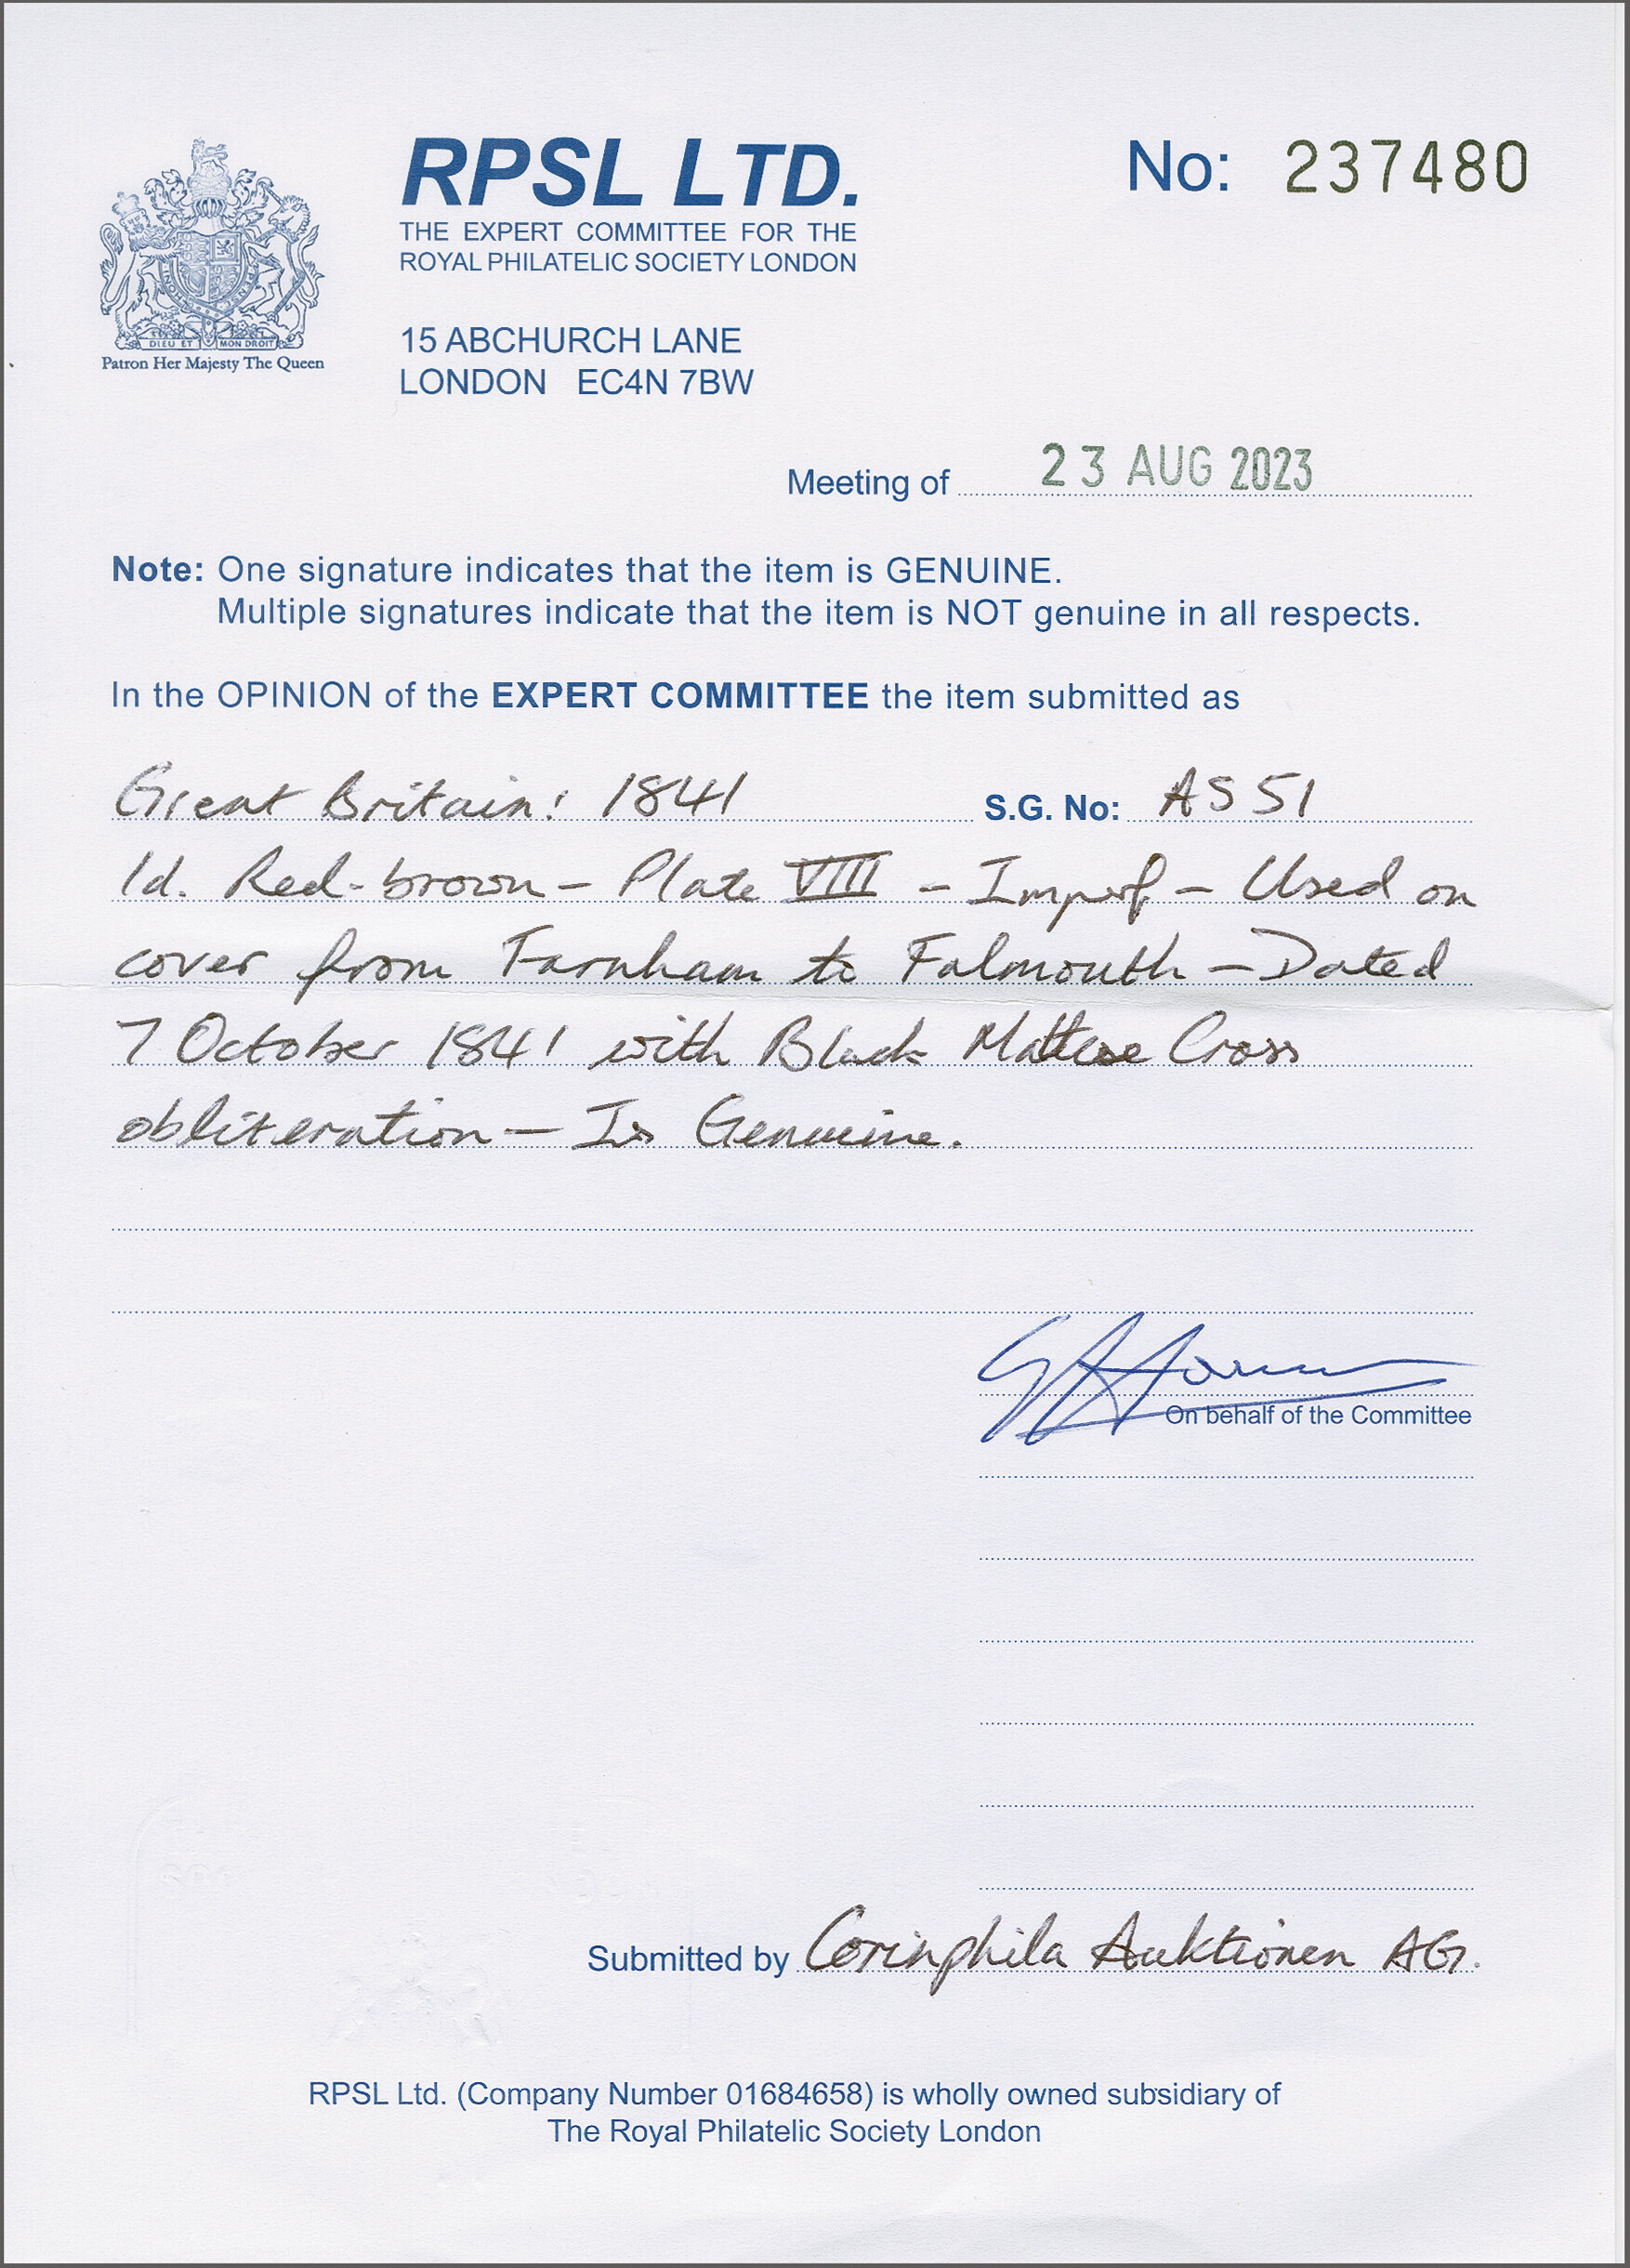 RPSL LTD.
No: 237480
THE EXPERT COMMITTEE FOR THE
ROYAL PHILATELIC SOCIETY LONDON
15 ABCHURCH LANE
LONDON EC4N 7BW
DIEU ET MON DROIT
Patron Her Majesty The Queen
Meeting of 23 AUG 2023
Note: One signature indicates that the item is GENUINE.
Multiple signatures indicate that the item is NOT genuine in all respects.
In the OPINION of the EXPERT COMMITTEE the item submitted as
Great Britain: 1841 S.G. No: AS51
1d. Red-brown - Plate VIII - Imperf - Used on
cover from Farnham to Falmouth - Dated
7 October 1841 with Black Maltese Cross
obliteration - Is Genuine.
On behalf of the Committee
Submitted by Corinphila Auktionen AG.
RPSL Ltd. (Company Number 01684658) is wholly owned subsidiary of
The Royal Philatelic Society London